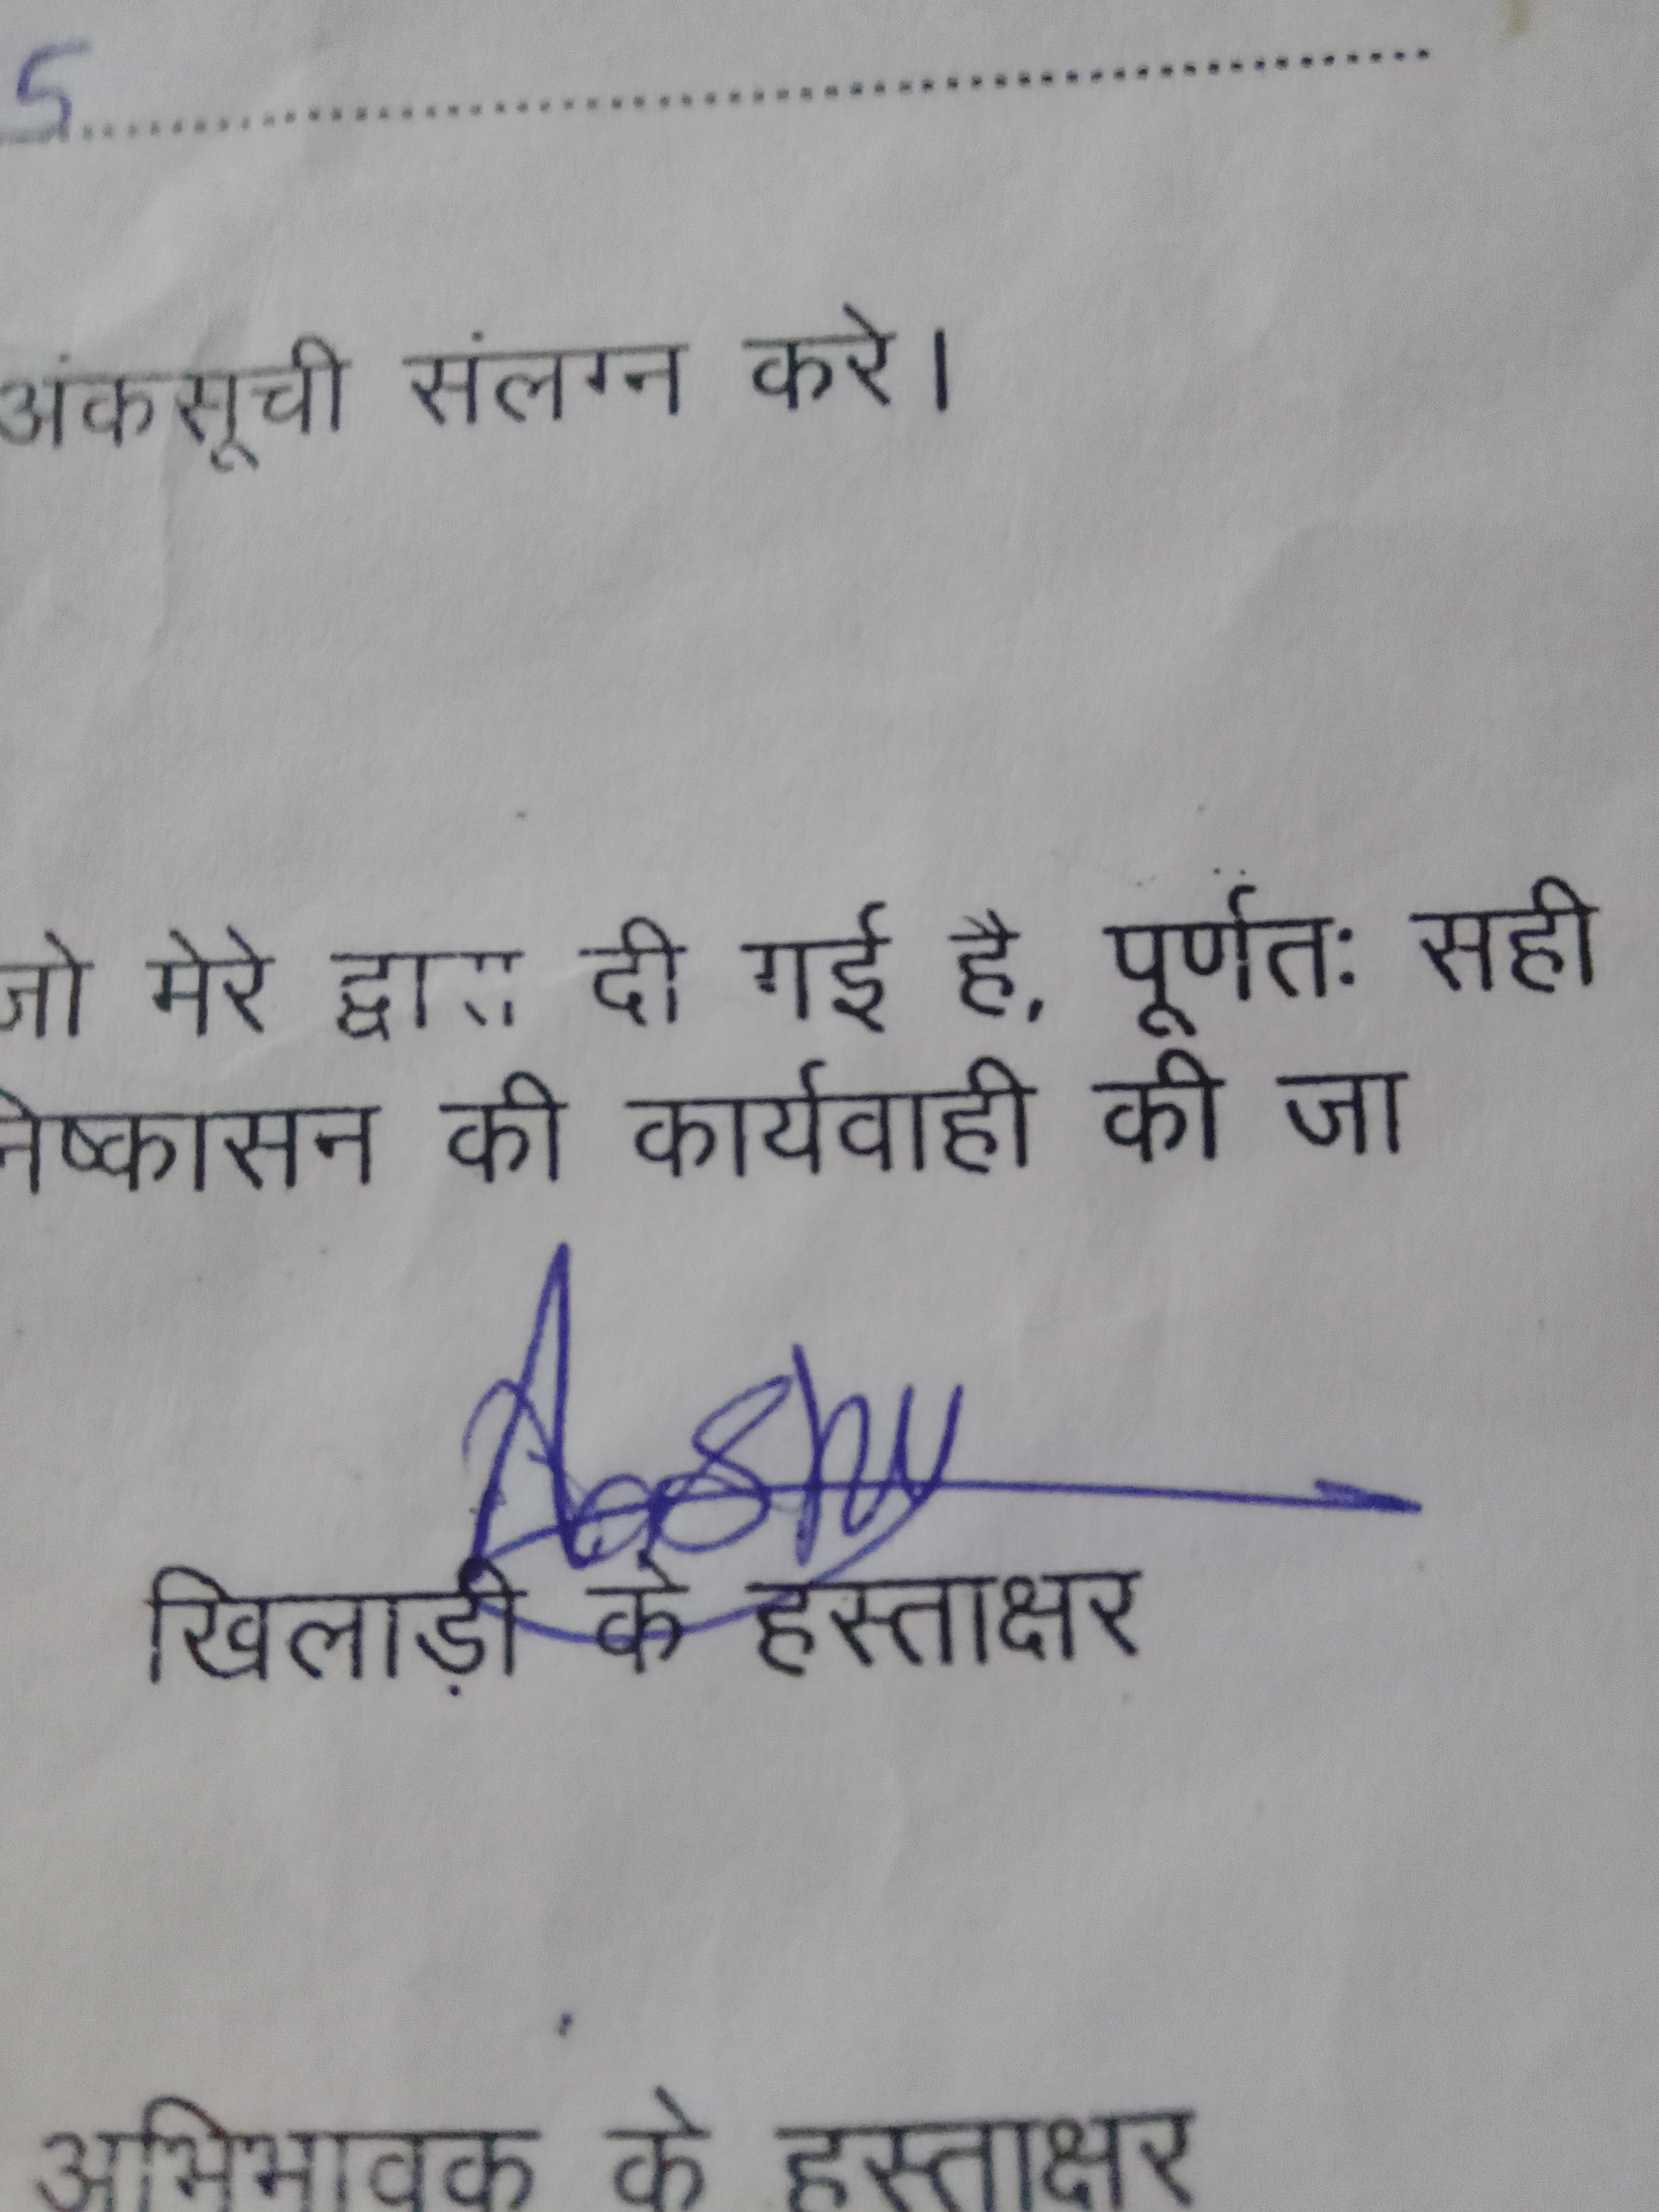 5
अंकसूची संलग्न करे।
जो मेरे द्वारा दी गई है, पूर्णतः सही
निष्कासन की कार्यवाही की जा
खिलाड़ी के हस्ताक्षर
अभिभावक के हस्ताक्षर